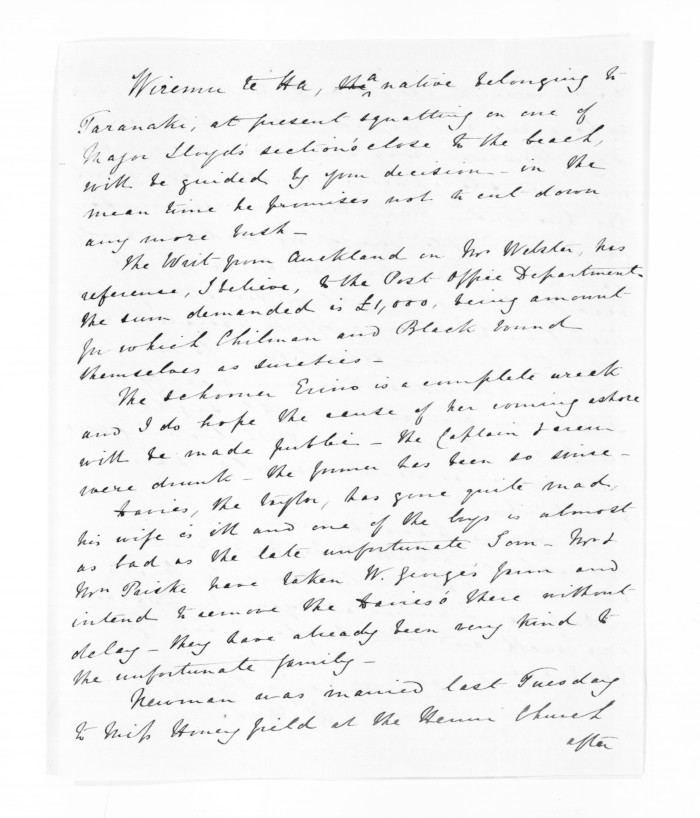 Wiremu te Ha, the a native belonging to
Taranaki, at present squatting on one of
Major Lloyd's section's close to the beach,
will be guided by your decision - in the
mean time he promises not to cut down
any more bush -
The Writ from Auckland on Mr Webster, has
reference, I believe, to the Post Office Department.
The sum demanded is £1,000, being amount
for which Chilman and Black bound
themselves as sureties -
The schooner is a complete wreck
and I do hope the cause of her coming ashore
will be made public - the Captain & crew
were drunk - the former has been so since -
Davies, the taylor, has gone quite mad,
his wife is ill and one of the boys is almost
as bad as the late unfortunate Tom - Mr &
Mrs have taken W. George's farm and
intend to remove the Davies's there without
delay - they have already been very kind to
the unfortunate family -
Newman was married last Tuesday
to Miss Honeyfield at the Henui Church
after